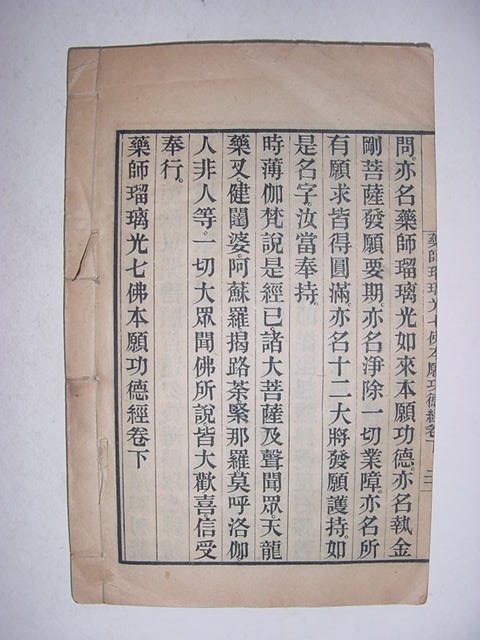 藥師瑠璃光七佛本願功德經卷下
問。亦名藥師瑠璃光如來本願功德。亦名執金
剛菩薩發願要期。亦名淨除一切業障。亦名所
有願求皆得圓滿。亦名十二大將發願護持。如
是名字。汝當奉持。
時薄伽梵說是經已。諸大菩薩及聲聞眾。天龍
藥叉。健闥婆。阿蘇羅。揭路荼。緊那羅。莫呼洛伽。
人非人等。一切大眾聞佛所說皆大歡喜。信受
奉行。
藥師瑠璃光七佛本願功德經卷下